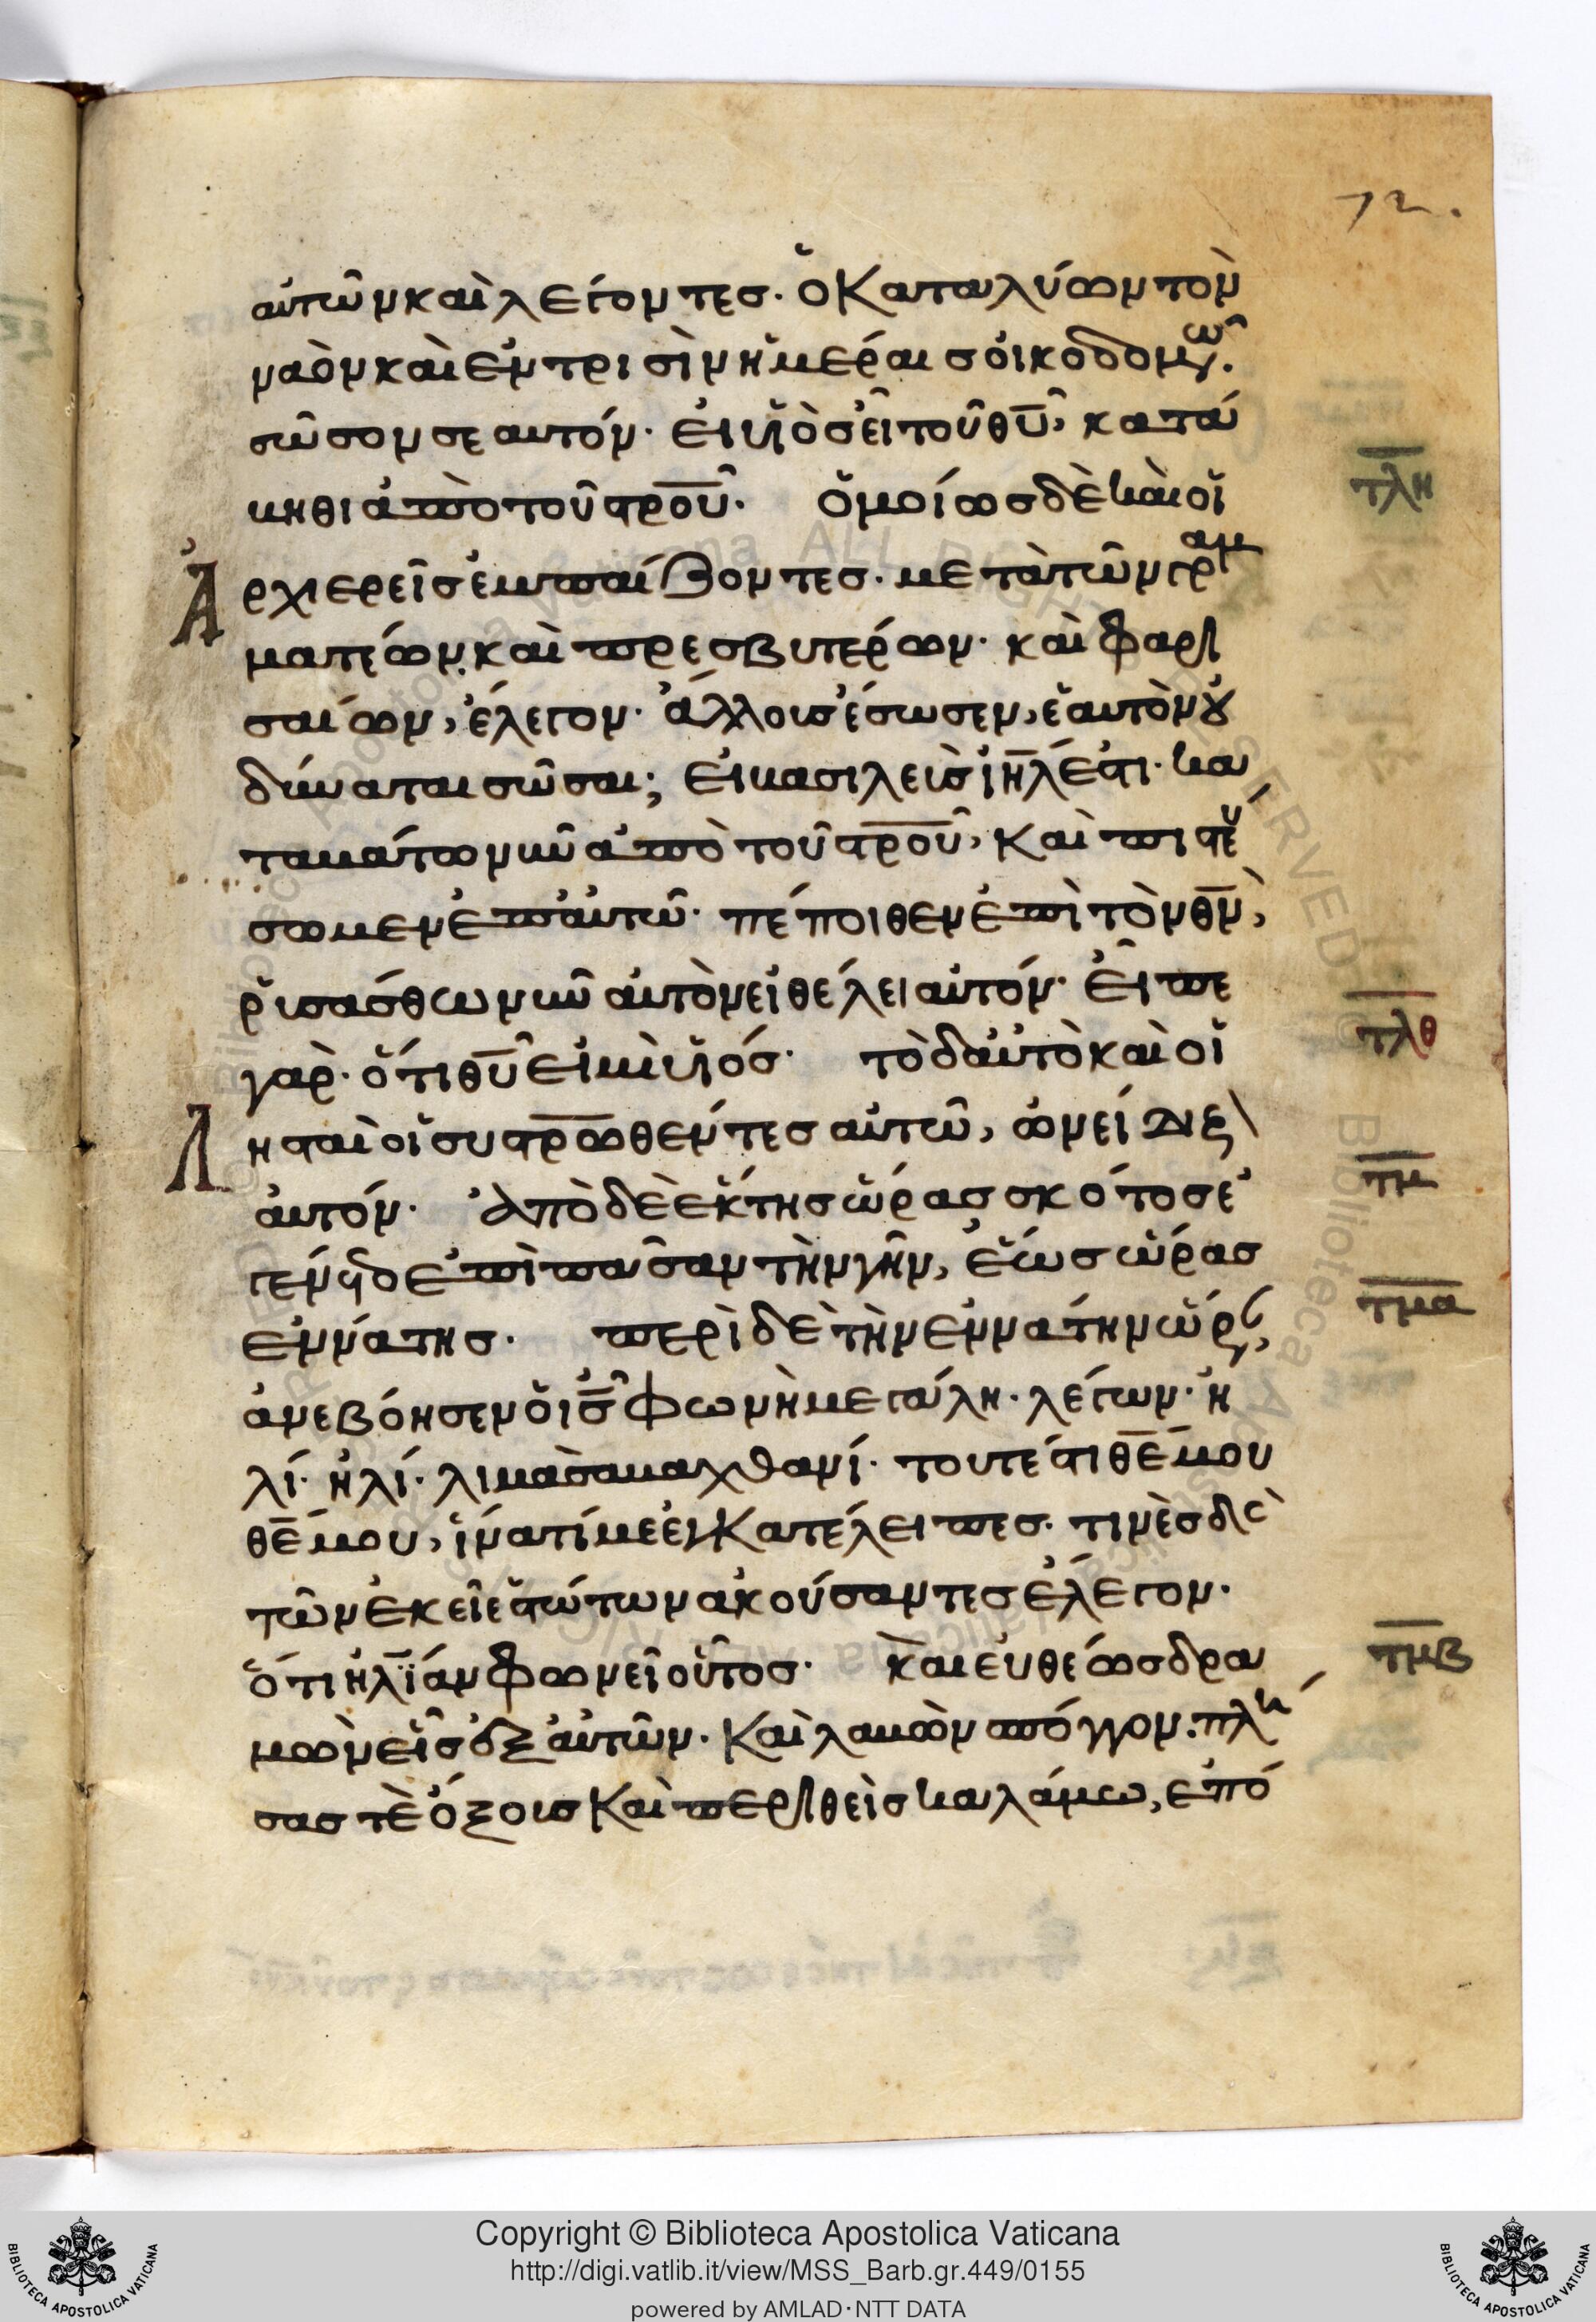 72.
αὐτῶν καὶ λέγοντες· ὁ καταλύων τὸν
ναὸν καὶ ἐν τρισὶν ἡμέραις οἰκοδομῶν·
σῶσον σεαυτόν· εἰ υἱὸς εἶ τοῦ θῦ, κατά
βηθι ἀπὸ τοῦ σροῦ· ὁμοίως δὲ καὶ οἱ
τλη
Ἀρχιερεῖς ἐμπαίζοντες· μετὰ τῶν γραμ
ματέων καὶ πρεσβυτέρων· καὶ φαρι
σαίων, ἔλεγον· ἄλλους ἔσωσεν, ἑαυτὸν οὐ
δύναται σῶσαι; εἰ βασιλεὺς ιηλ ἐστι· κα
ταβάτω νῦν ἀπὸ τοῦ σροῦ, καὶ πιστεύ
σωμεν ἐπ' αὐτῶ· πέποιθεν ἐπὶ τὸν θν,
ῥυσάσθω νῦν αὐτὸν εἰ θέλει αὐτόν· εἶπε
γὰρ· ὅτι θυ εἰμὶ υἱός· τὸ δ' αὐτὸ καὶ οἱ
τλθ
Λησταὶ οἱ συσρωθέντες αὐτῶ, ὠνείδιζ
αὐτόν· ἀπὸ δὲ ἕκτης ὥρας σκότος ἐ
τμ
γένετο ἐπὶ πᾶσαν τὴν γῆν, ἕως ὥρας
ἐννάτης· περὶ δὲ τὴν ἐννάτην ὥραν,
τμα
ἀνεβόησεν ὁ ις φωνῆ μεγάλη· λέγων· ἠ
λί· ἠλί· λιμὰ σαβαχθανί· τουτέστι θέ μου
θέ μου, ἱνατί με ἐγκατέλειπες· τινὲς δὲ
τῶν ἐκεῖ ἑστώτων ἀκούσαντες ἔλεγον·
ὅτι ἠλίαν φωνεῖ οὗτος· καὶ εὐθέως δρα
τμβ
μὼν εἷς ἐξ αὐτῶν· καὶ λαβὼν σπόγγον· πλή
σας τὲ ὄξους καὶ περιθεὶς καλάμω, ἐπό
Copyright © Biblioteca Apostolica Vaticana
http://digi.vatlib.it/view/MSS_Barb.gr.449/0155
powered by AMLAD·NTT DATA
BIBLIOTECA APOSTOLICA VATICANA
BIBLIOTECA APOSTOLICA VATICANA